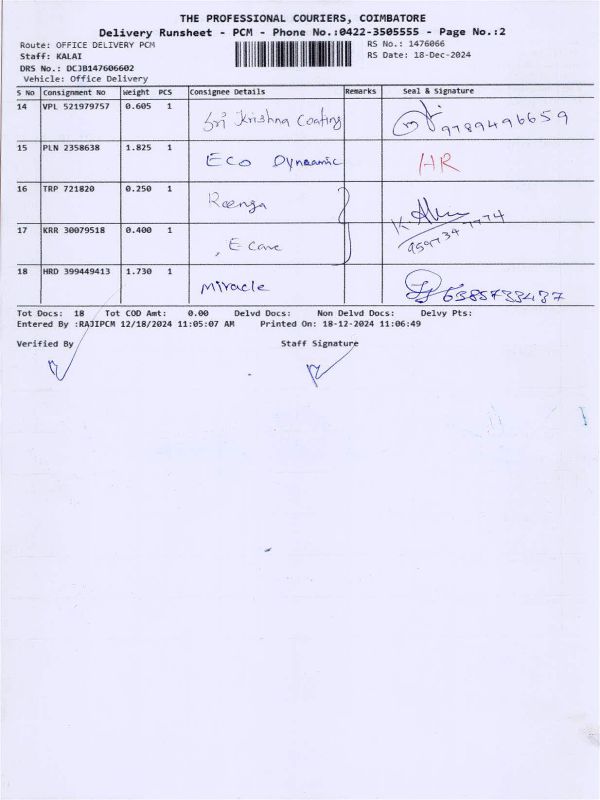 THE PROFESSIONAL COURIERS, COIMBATORE
Delivery Runsheet - PCM - Phone No.:0422-3505555 - Page No.:2
Route: OFFICE DELIVERY PCM RS No.: 1476066
Staff: KALAI RS Date: 18-Dec-2024
DRS No.: DCJB147606602
Vehicle: Office Delivery
S No Consignment No Weight PCS Consignee Details Remarks Seal & Signature
14 VPL 521979757 0.605 1 ஸ்ரீ Krishna Coating 9789496659
15 PLN 2358638 1.825 1 ECO Dynaamic HR
16 TRP 721820 0.250 1 Reenga
17 KRR 30079518 0.400 1 E Care 9597347774
18 HRD 399449413 1.730 1 Miracle 6385733437
Tot Docs: 18 Tot COD Amt: 0.00 Delvd Docs: Non Delvd Docs: Delvy Pts:
Entered By :RAJIPCM 12/18/2024 11:05:07 AM Printed On: 18-12-2024 11:06:49
Verified By Staff Signature